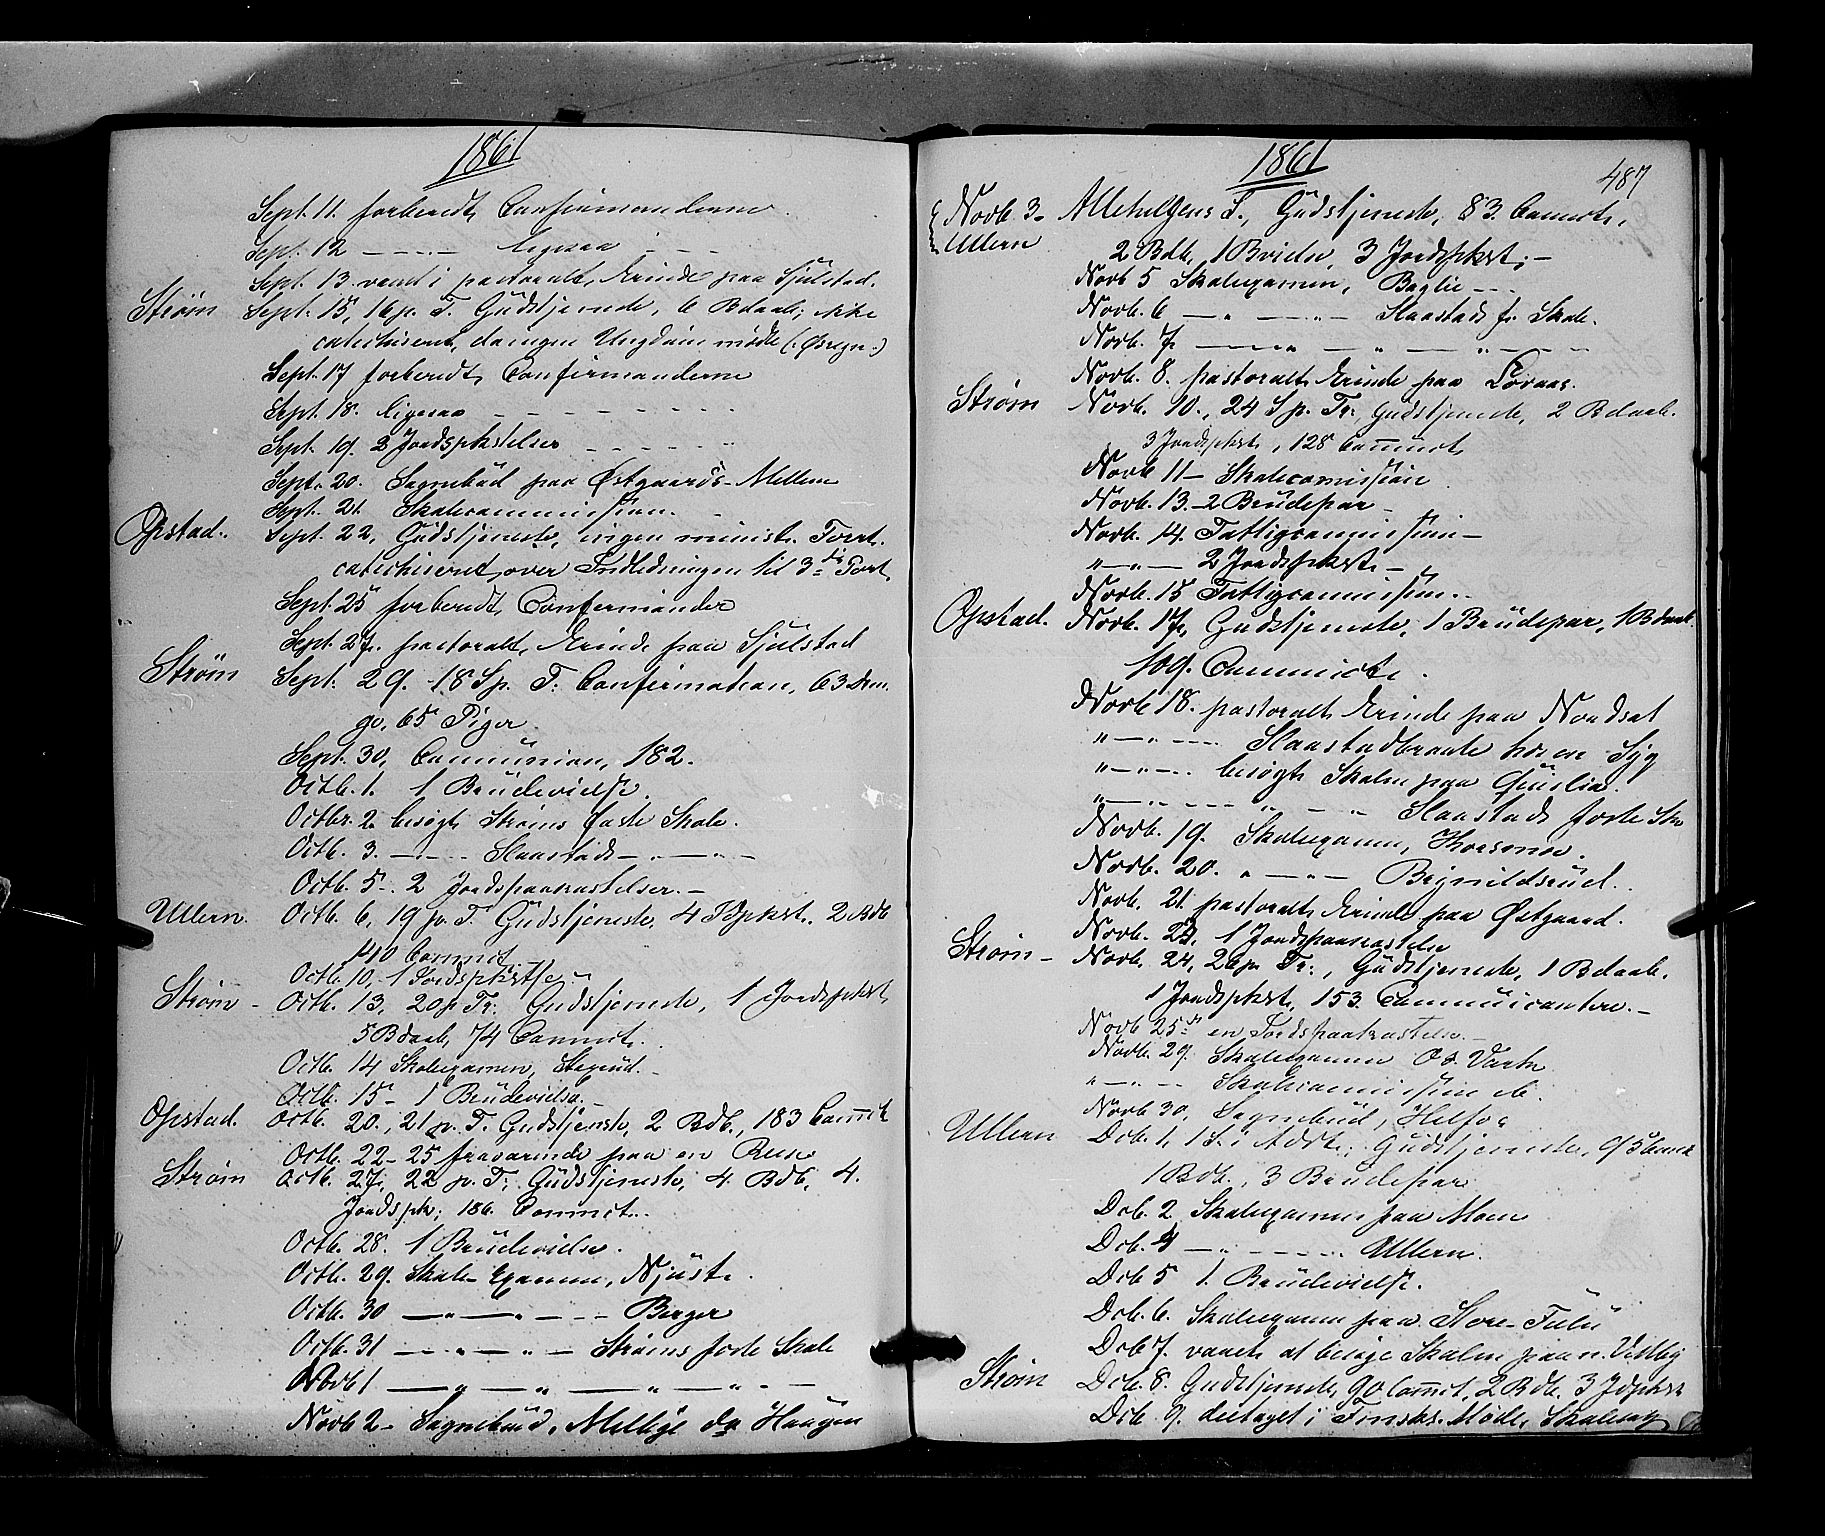 1861
Sept. 11. forberedt, Confirmanderne.
Sept. 12 — — — ligesaa — —
Sept. 13 været i pastoralt Erinde paa Sjulstad.
Strøm Sept. 15, 16 p. T. Gudstjeneste, 6 Bdaab; ikke
catechiseret, da ingen Ungdom mødte (: Øsregn :)
Sept. 17 forberedt, Confirmanderne
Sept. 18. ligesaa — — — — — — —
Sept. 19. 2 Jordspkstelser — — — — "
Sept. 20. Sognebud paa Østgaards-Mellem
Sept. 21. Skolecommission.
Opstad. Sept. 22, Gudstjeneste, ingen minist. Forrt.
catechiseret over Indledningen til 3die Part
Sept. 25 forberedt, Confirmander
Sept. 27. pastoralt, Erinde paa Sjulstad
Strøm Sept. 29. 18 S. p. T. Confirmation, 63 Dren-
ge, 65 Piger.
Sept. 30, Communion, 182.
Octb. 1. 1 Brudevielse.
Octbr. 2. besøgt Strøms faste Skole.
Octb. 3. — — — Slaastads — " — " —
Octb. 5 — 2 Jordspaakastelser. —
Ullern. Octb. 6, 19 p. T. Gudstjeneste, 4 Jdpkst. 2 Bdb
140 Commct.
Octb. 10, 1 Jordspkstse —
Strøm — Octb. 13, 20 p. Tr. Gudstjeneste, 1 Jordspkst
5 Bdaab, 74 Commct.
Octb. 14 Skoleexamen, Stegrud. —
Octb. 15 — 1 Brudevielse. —
Opstad. Octb. 20., 21 p. T. Gudstjenste, 2 Bdb., 183 Comct
Octb. 22–25 fraværende paa en Reise
Strøm Octb. 27, 22 p. T. Gudstjeneste, 4 Bdb, 4.
Jordspk; 186 Commct.
Octb. 28. 1 Brudevielse.
Octb. 29. Skole-Examen, Njust.
Octb. 30 — " — " — — — Berger
Octb. 31 — " — " — — Strøms faste Skole
Novb 1 — " — " — " — " —
Novb 2 — Sognebud, Melbye og Haugen
1861
487
Novb. 3 — Allehelgens F., Gudstjeneste, 83 Commct.,
Ullern 2 Bdb, 1 Brvielse, 3 Jordspkst. —
Novb 5 Skoleexamen, Baglie — — -
Novb. 6 — " — — " — Slaastads f. Skole.
Novb. 7 — — " — " — " — —
Novb. 8. pastoralt Erinde paa Løvaas.
Strøm Novb. 10., 24 S. p. Tr., Gudstjeneste, 2 Bdaab.
3 Jordspkst, 128 Commct
Novb 11 — Skolecomission
Novb. 13 — 2 Brudepar —
Novb. 14. Fattigcommission —
" — " — 2 Jordspkst. —
Novb. 15 Fattigcommission. —
Opstad. Novb. 17, Gudstjeneste, 1 Brudepar, 1 Bdaab.
109. Commcte.
Novb 18. pastoralt Erinde paa Nordset
" — " — — Slaastadbraate hos en Syg
" — " — - besøgt Skolen paa
" — " — — — " — " Slaastads faste Sko
Novb. 19. Skoleexamen, Korsmoe.
Novb. 20. " — " — Brynildsrud.
Novb. 21. pastoralt Erinde paa Østgaard.
Novb. 23, 1 Jordspaakastelse
Strøm — Novb. 24, 26 p. Tr., Gudstjeneste, 1 Bdaab.
1 Jordspkst, 153 Communicantere. —
Novb 25de en Jordspaakastelse —
Novb. 29. Skoleexamen
" — " — — Skolecommission
Novb 30, Sognebud, Helfos
Ullern Dcb. 1, 1 S. i Advt., Gudstjeneste, 95 Comct
1 Bdb., 3 Brudepar
Dcb. 2 Skoleexamen paa Moen
Dcb. 4 — " — — — — Ullern.
Dcb 5 1. Brudevielse.
Dcb. 6. Skoleexamen paa Store-Fulu
Dcb 7. været at besøge Skolen paa n. Vestby
Strøm Dcb. 8. Gudstjeneste, 90 Comct, 2 Bdb. 3 Jdpkst
Dcb. 9. deltaget i Møde,